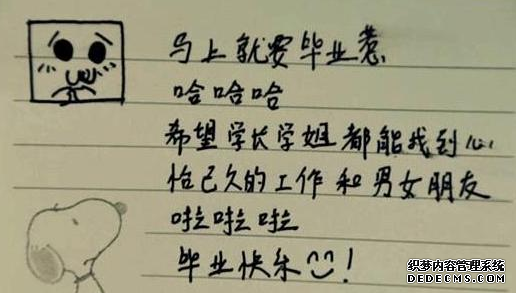 马上就要毕业惹
哈哈哈
希望学长学姐都能找到心
怡己久的工作和男女朋友
啦啦啦
毕业快乐!
织梦内容管理系统
DEDECMS.COM